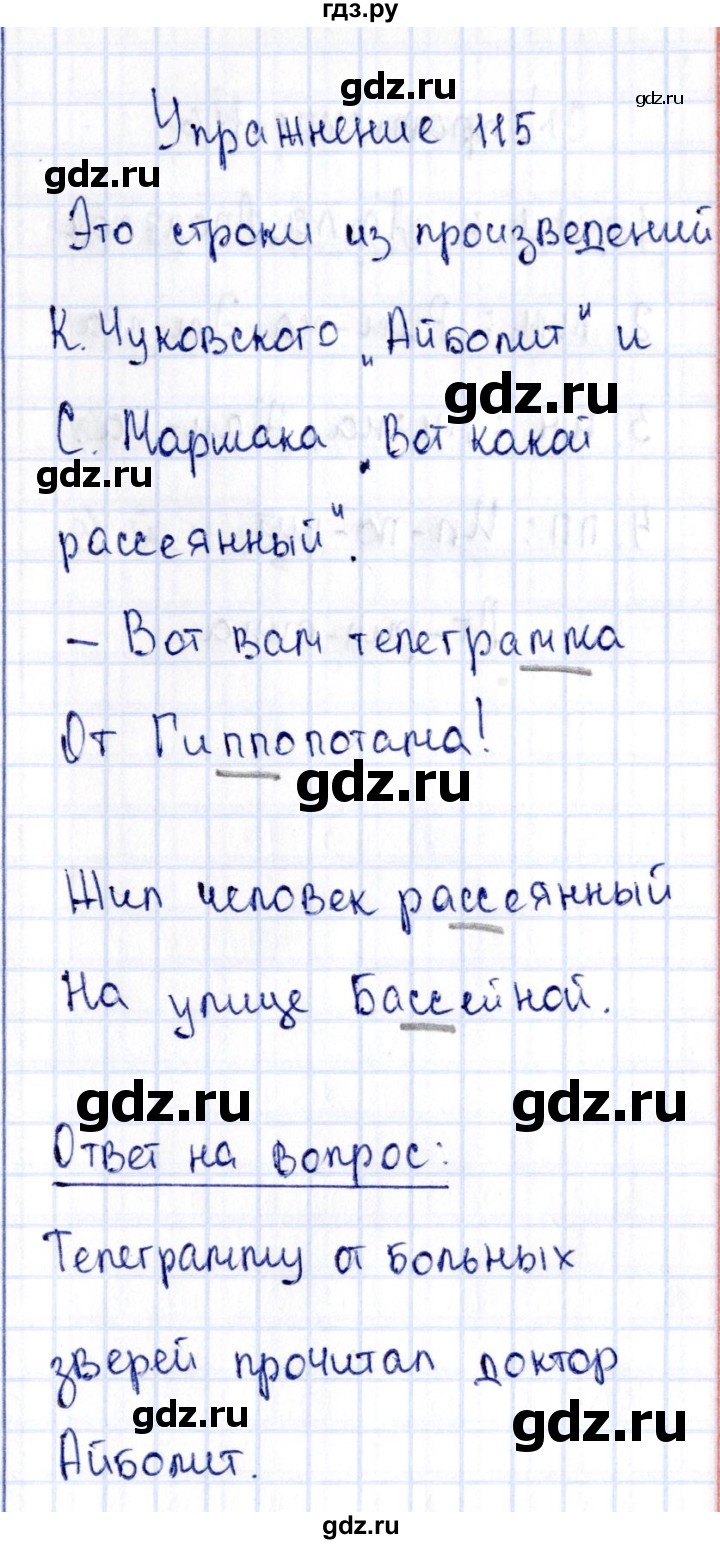 гдз.ру
gdz.ru
gdz.ru
Упражнение 115
gdz.ru
Это строки из произведений
К. Чуковского „Айболит" и
gdz.ru
С. Маршака „Вот какой
gdz.ru
рассеянный".
– Вот вам телеграмма
От Гиппопотама!
gdz.ru
Жил человек рассеянный
На улице Бассейной.
gdz.ru
gdz.ru
Ответ на вопрос:
Телеграмму от больных
зверей прочитал доктор
gdz.ru
gdz.ru
Айболит.
gdz.ru